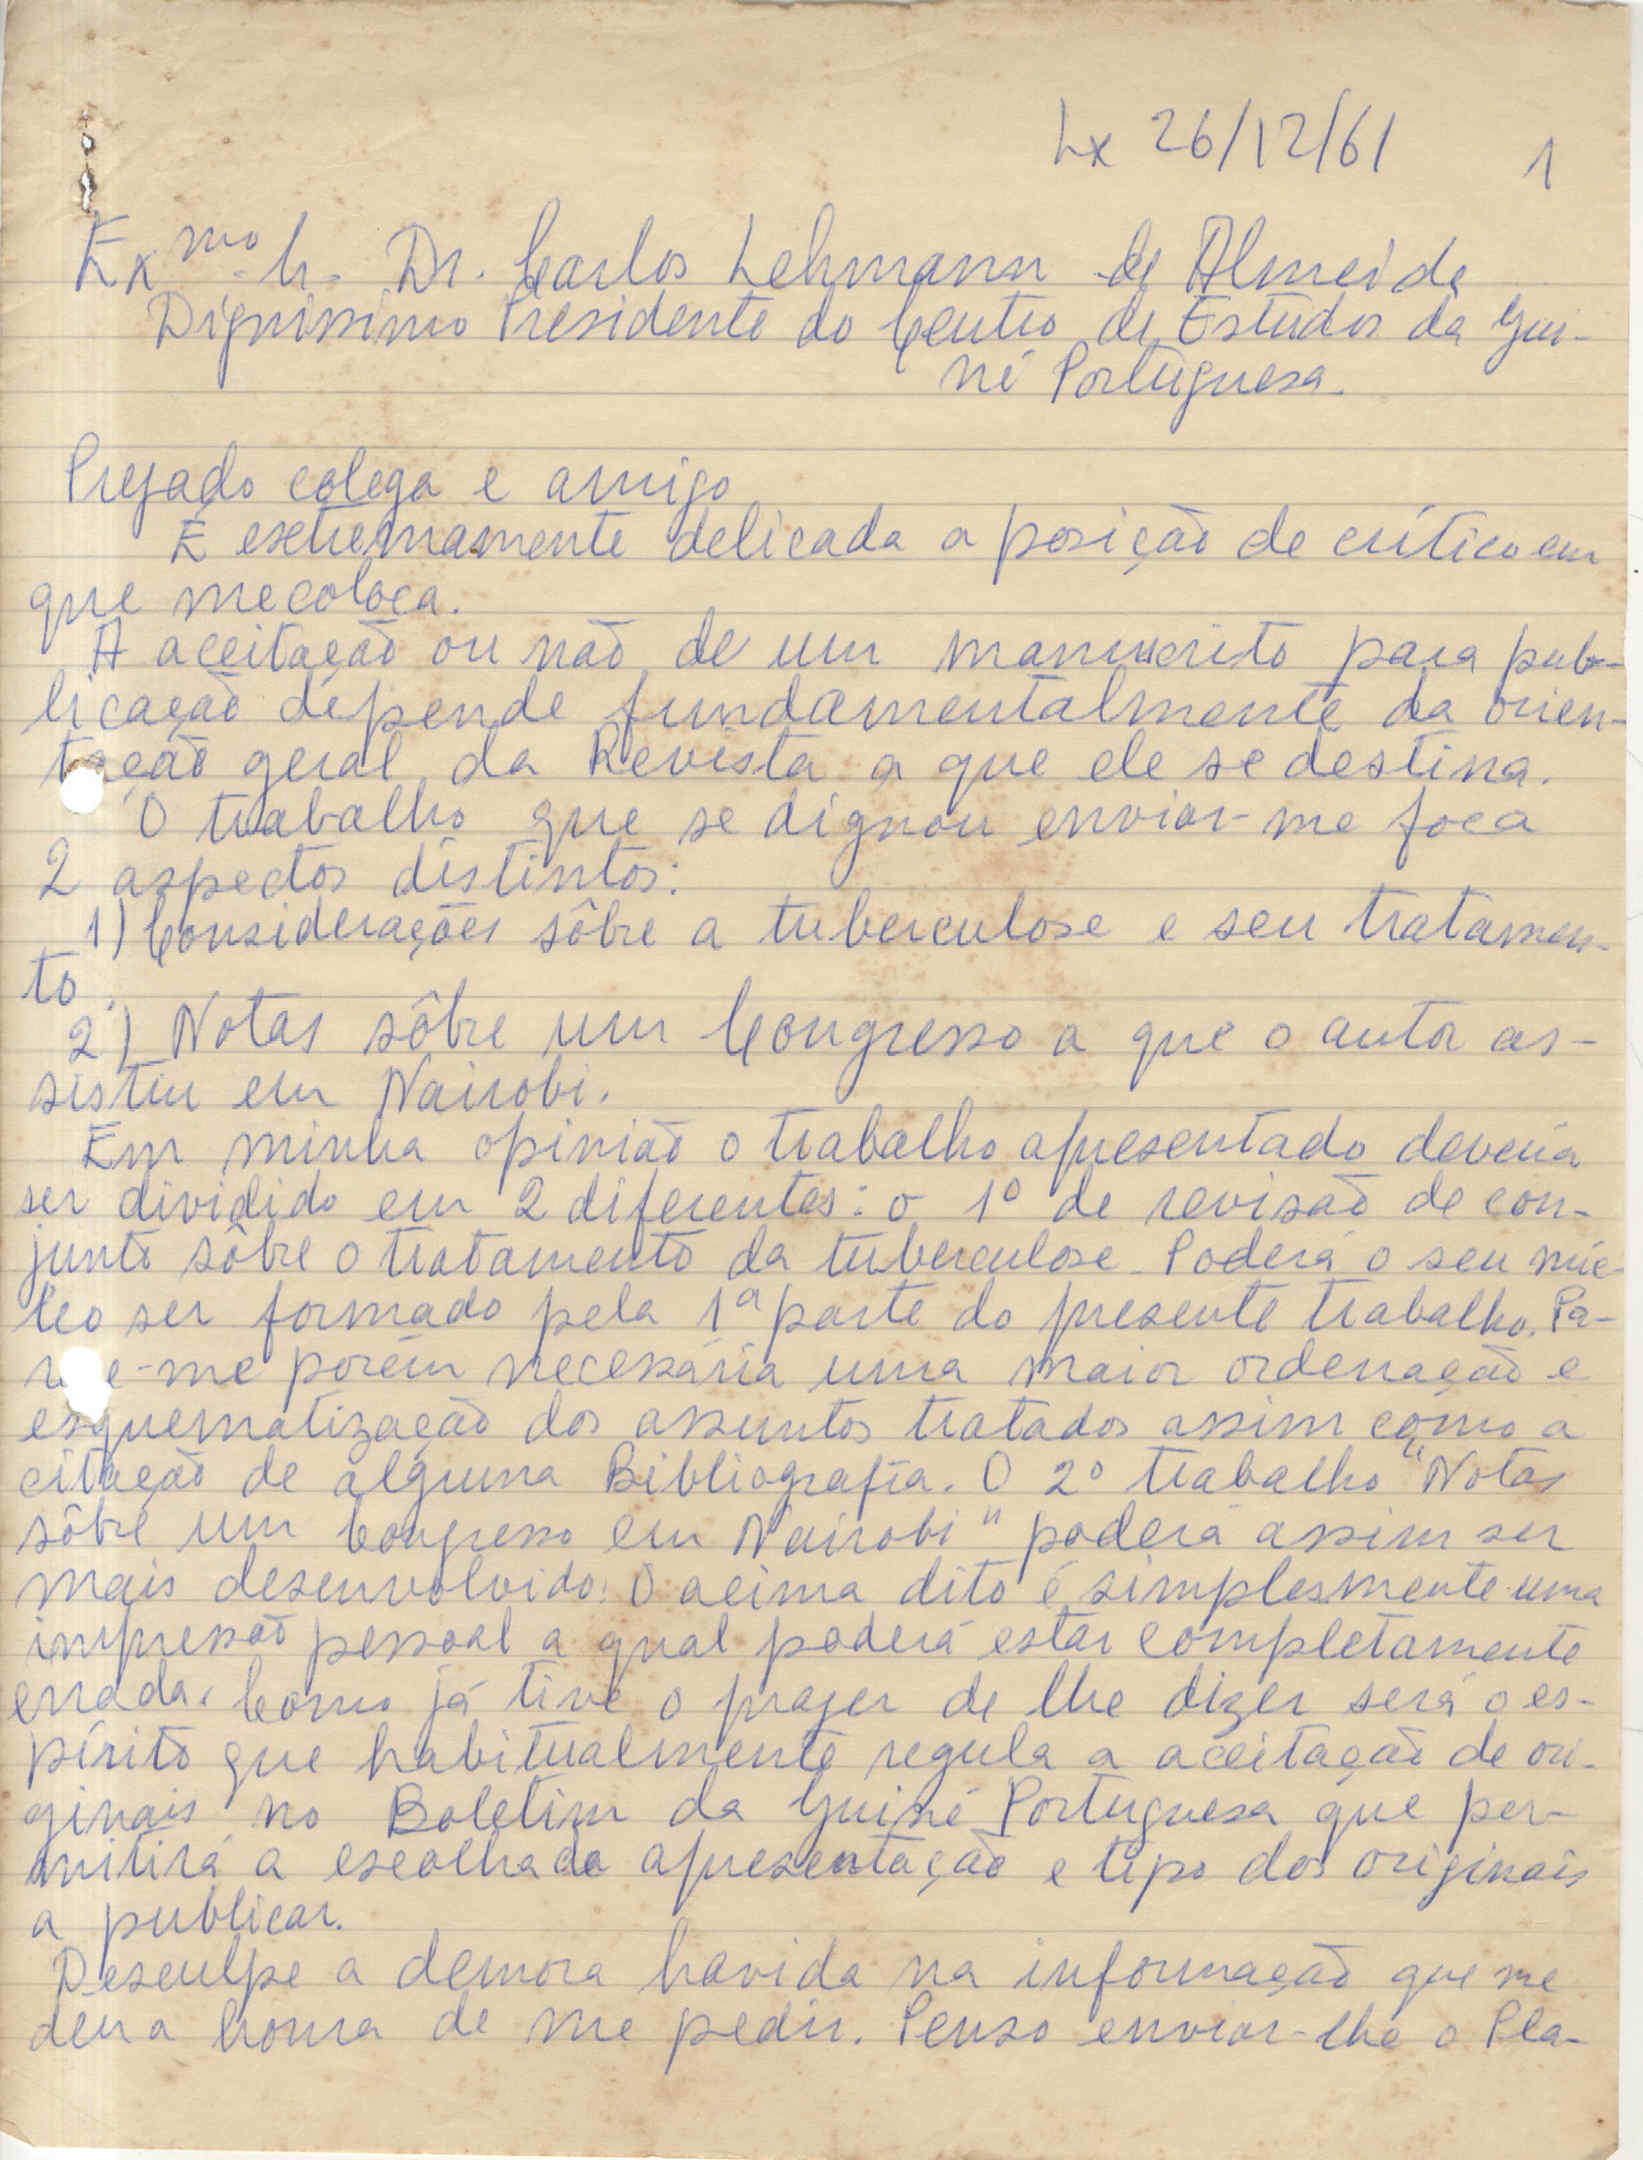 Lx 26/12/61 1
Exmo. Sr. Dr. Carlos Lehmann de Almeida
Digníssimo Presidente do Centro de Estudos da Gui-
né Portuguesa.
Prezado colega e amigo
É extremamente delicada a posição de crítico em
que me coloca.
A aceitação ou não de um manuscrito para pub-
licação depende fundamentalmente da orien-
tação geral da Revista a que ele se destina.
O trabalho que se dignou enviar-me foca
2 aspectos distintos:
1) Considerações sôbre a tuberculose e seu tratamen-
to.
2) Notas sôbre um Congresso a que o autor as-
sistiu em Nairobi.
Em minha opinião o trabalho apresentado deveria
ser dividido em 2 diferentes: o 1º de revisão de con-
junto sôbre o tratamento da tuberculose. Poderá o seu núc-
leo ser formado pela 1ª parte do presente trabalho. Pa-
rece-me porém necessária uma maior ordenação e
esquematização dos assuntos tratados assim como a
citação de alguma Bibliografia. O 2º trabalho "Notas
sôbre um Congresso em Nairobi" poderá assim ser
mais desenvolvido. O acima dito é simplesmente uma
impressão pessoal a qual poderá estar completamente
errada. Como já tive o prazer de lhe dizer será o es-
pírito que habitualmente regula a aceitação de ori-
ginais no Boletim da Guiné Portuguesa que per-
mitirá a escolha da apresentação e tipo dos originais
a publicar.
Desculpe a demora havida na informação que me
deu a honra de me pedir. Penso enviar-lhe o Pla-